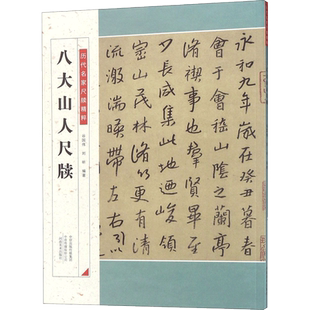 历代名家尺牍精粹
八大山人尺牍
永和九年歲在癸丑暮春
會于會稽山陰之蘭亭
脩禊事也羣賢畢至
少長咸集此地迺峻領
崇山茂林脩竹更有清
流激湍暎帶左右引
编著